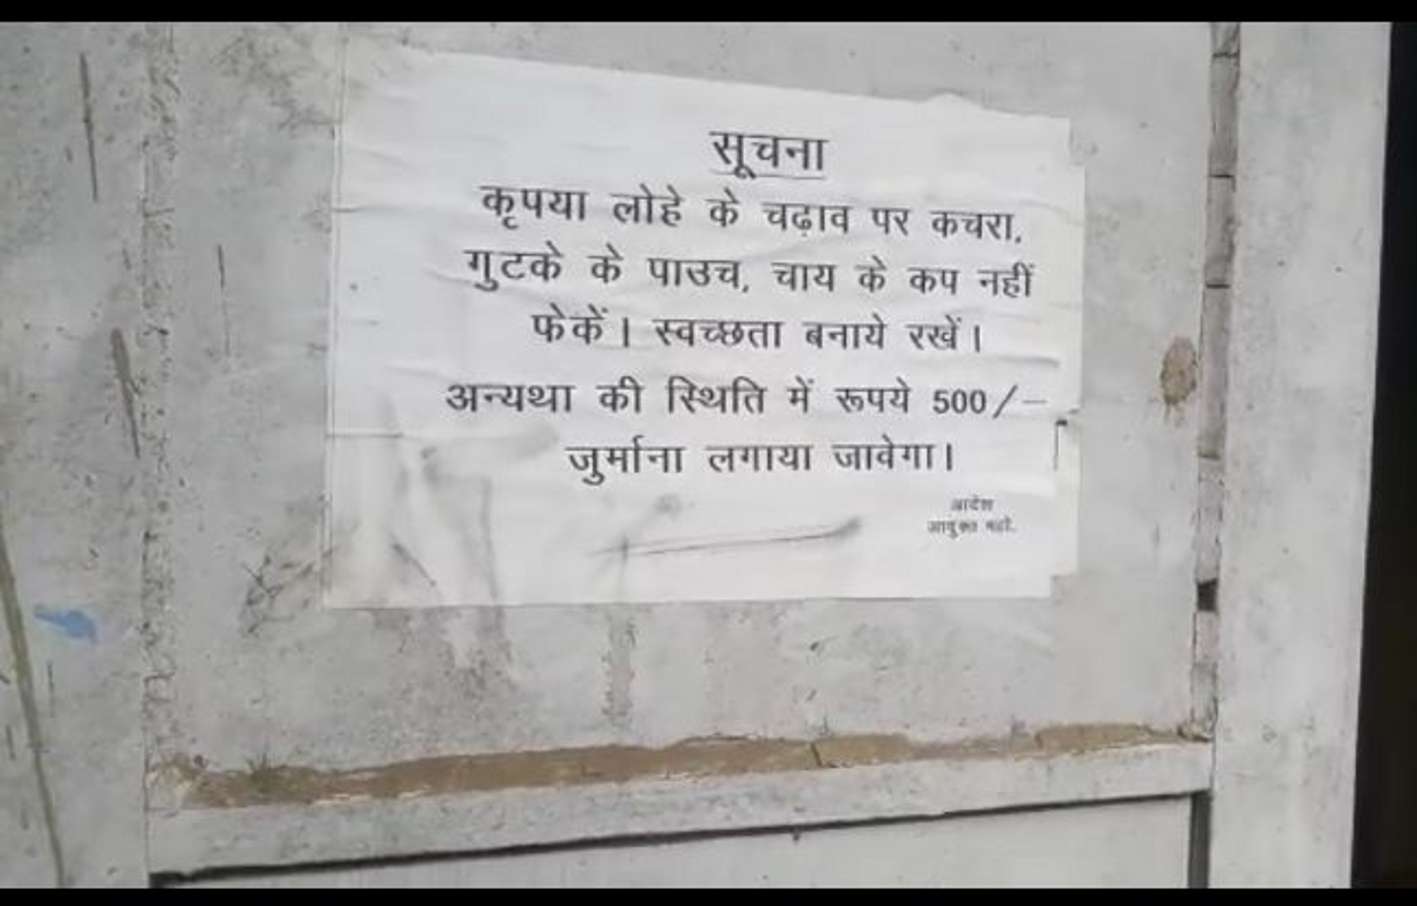 सूचना
कृपया लोहे के चढ़ाव पर कचरा,
गुटके के पाउच, चाय के कप नहीं
फेकें। स्वच्छता बनाये रखें।
अन्यथा की स्थिति में रूपये 500/–
जुर्माना लगाया जावेगा।
आदेश
आयुक्त महो.